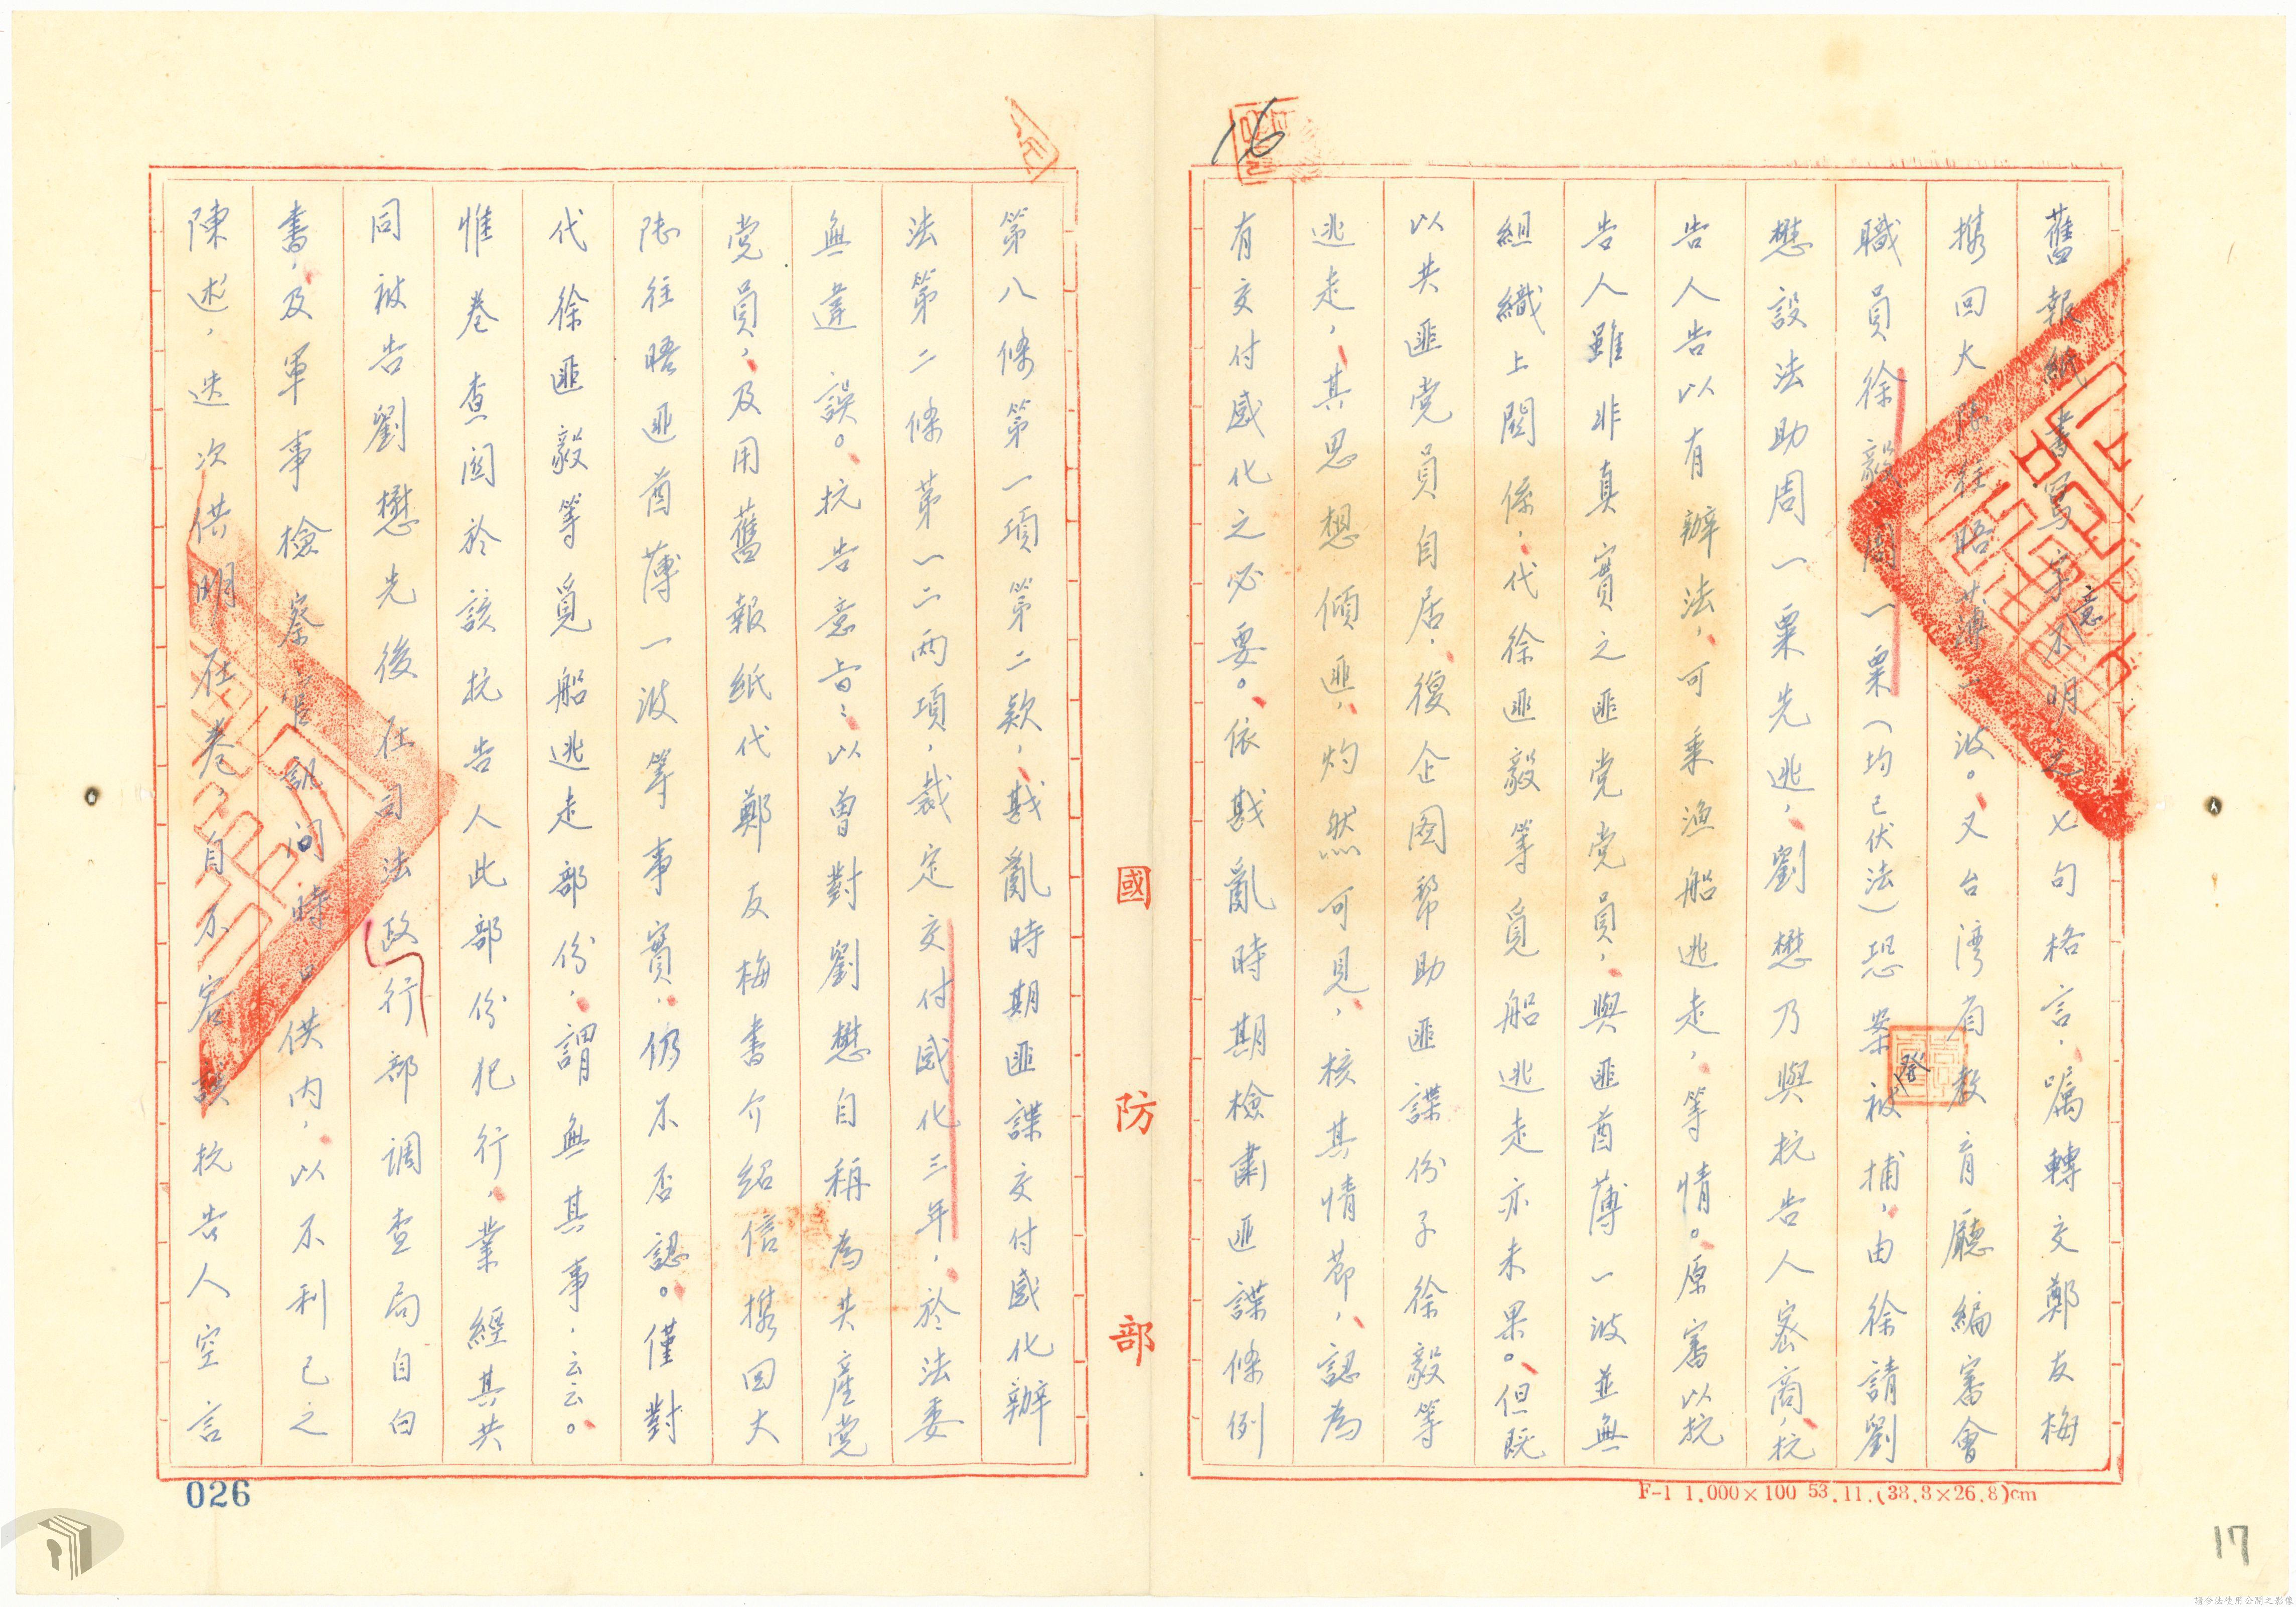 舊報紙書写字意不明之七句格言，囑轉交鄭友梅
攜回大陸往晤薄一波。又台湾省教育廳編審會
職員徐毅、周一粟（均已伏法）恐案發被捕，由徐請劉
懋設法助周一粟先逃，劉懋乃與抗告人密商，抗
告人告以有辦法，可乘漁船逃走，等情。原審以抗
告人雖非真實之匪党党員，與匪酋薄一波並無
組織上関係，代徐匪毅等覓船逃走亦未果。但既
以共匪党員自居，復企图幫助匪諜份子徐毅等
逃走，其思想傾匪，灼然可見，核其情節，認為
有交付感化之必要。依戡亂時期檢肅匪諜條例
國防部
第八條第一項第二款，戡亂時期匪諜交付感化辦
法第二條第一二兩項，裁定交付感化三年，於法委
無違誤。抗告意旨：以曾對劉懋自稱為共產党
党員，及用舊報紙代鄭友梅書介紹信攜回大
陸往晤匪酋薄一波等事實，仍不否認。僅對
代徐匪毅等覓船逃走部份，謂無其事，云云。
惟卷查関於該抗告人此部份犯行，業經其共
同被告劉懋先後在司法行政部調查局自白
書，及軍事檢察官訊問時口供內，以不利己之
陳述，迭次供明在卷，自不容該抗告人空言
16
026
F-1 1.000×100 53.11.(38.8×26.8)cm
17
請合法使用公開之影像